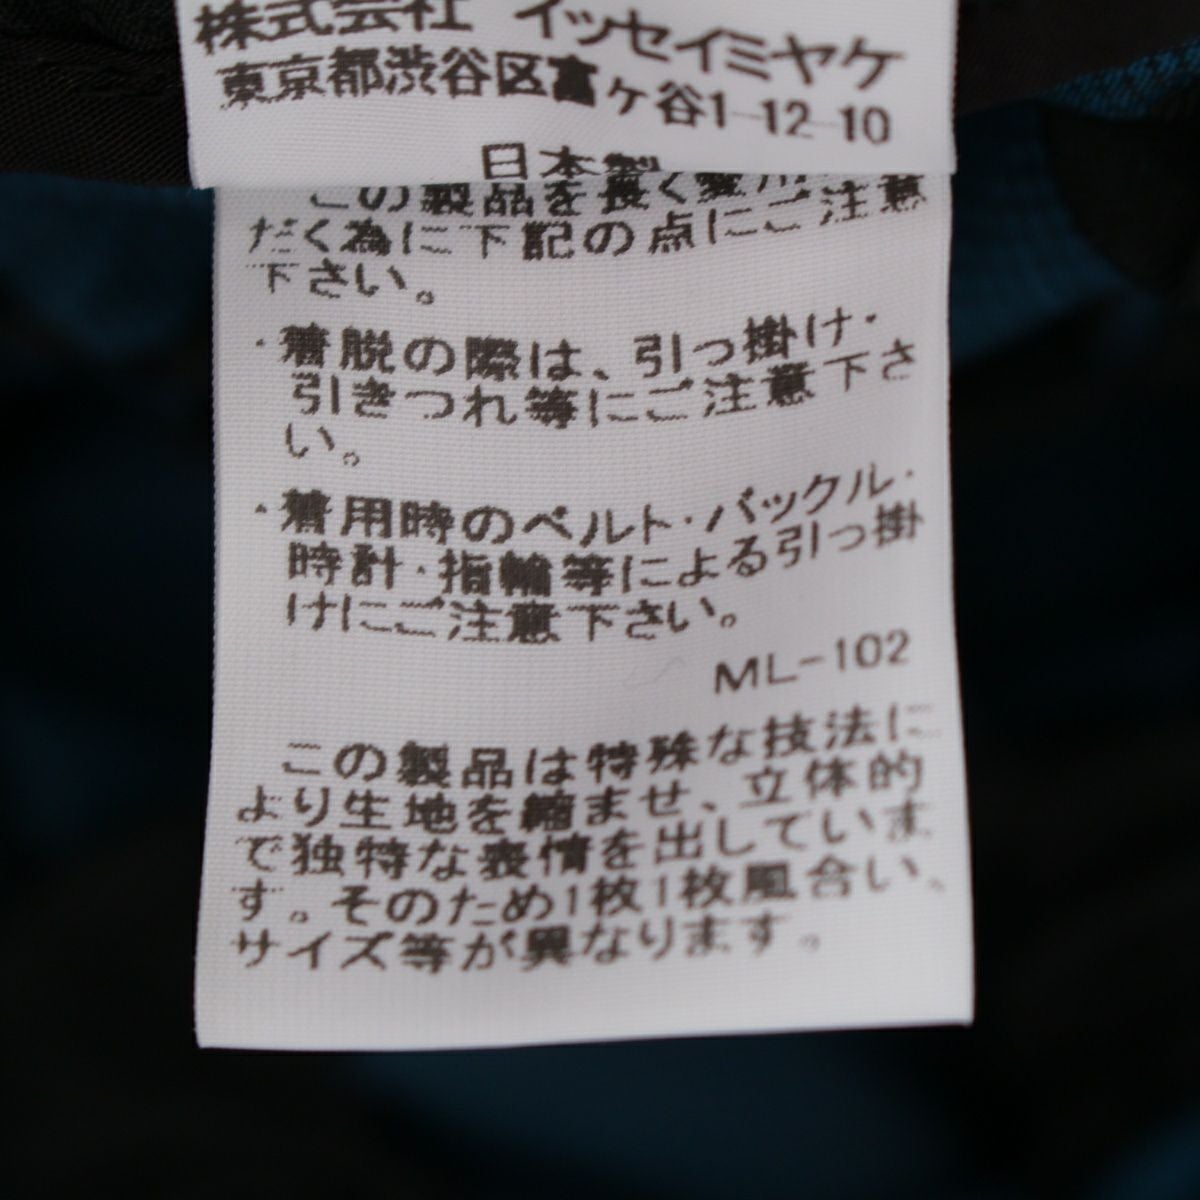 株式会社 イッセイミヤケ
東京都渋谷区富ヶ谷1-12-10
日本製
この製品を長く愛用 ご注意
だく為に下記の点にご注意
下さい。
・着脱の際は、引っ掛け・
引きつれ等にご注意下さ
い。
・着用時のベルト・バックル・
時計・指輪等による引っ掛
けにご注意下さい。
ML-102
この製品は特殊な技法に
より生地を縮ませ、立体的
で独特な表情を出していま
す。そのため1枚1枚風合い、
サイズ等が異なります。